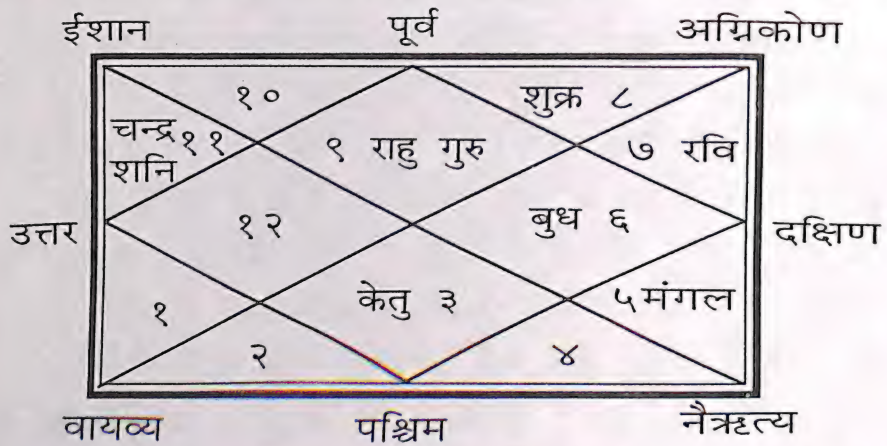 ईशान पूर्व अग्निकोण
१० शुक्र ८
चन्द्र ११ ९ राहु गुरु ७ रवि
शनि
उत्तर १२ बुध ६ दक्षिण
१ केतु ३ ५ मंगल
२ ४
वायव्य पश्चिम नैऋत्य